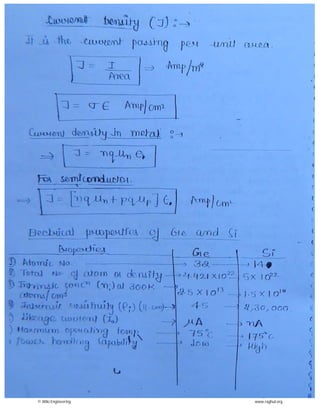 Current Density (J) :→
It is the current passing per unit area.
J = I / Area → Amp/m²
J = σ E Amp/cm²
Current density in metal :→
⇒ J = nqμn E,
For semiconductor.
⇒ J = [nqμn + pqμp] E, Amp/cm²
Electrical properties of Ge and Si
Properties Ge Si
1) Atomic No. → 32 → 14
2) Total No of atom or density → 4.421×10²² 5×10²²
3) Intrinsic concn (ni) at 300K → 2.5×10¹³ → 1.5×10¹⁰
atoms/cm³
Intrinsic resistivity (ρi) (Ω-cm) → 45 → 2,30,000
Leakage current (Io) → μA → nA
Maximum operating temp → 75°C → 175°C
Power handling capability → low → High
© Wiki Engineering www.raghul.org